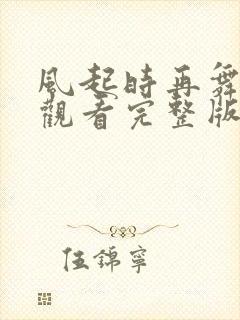 風起時再舞
觀看完整版
伍錦寧